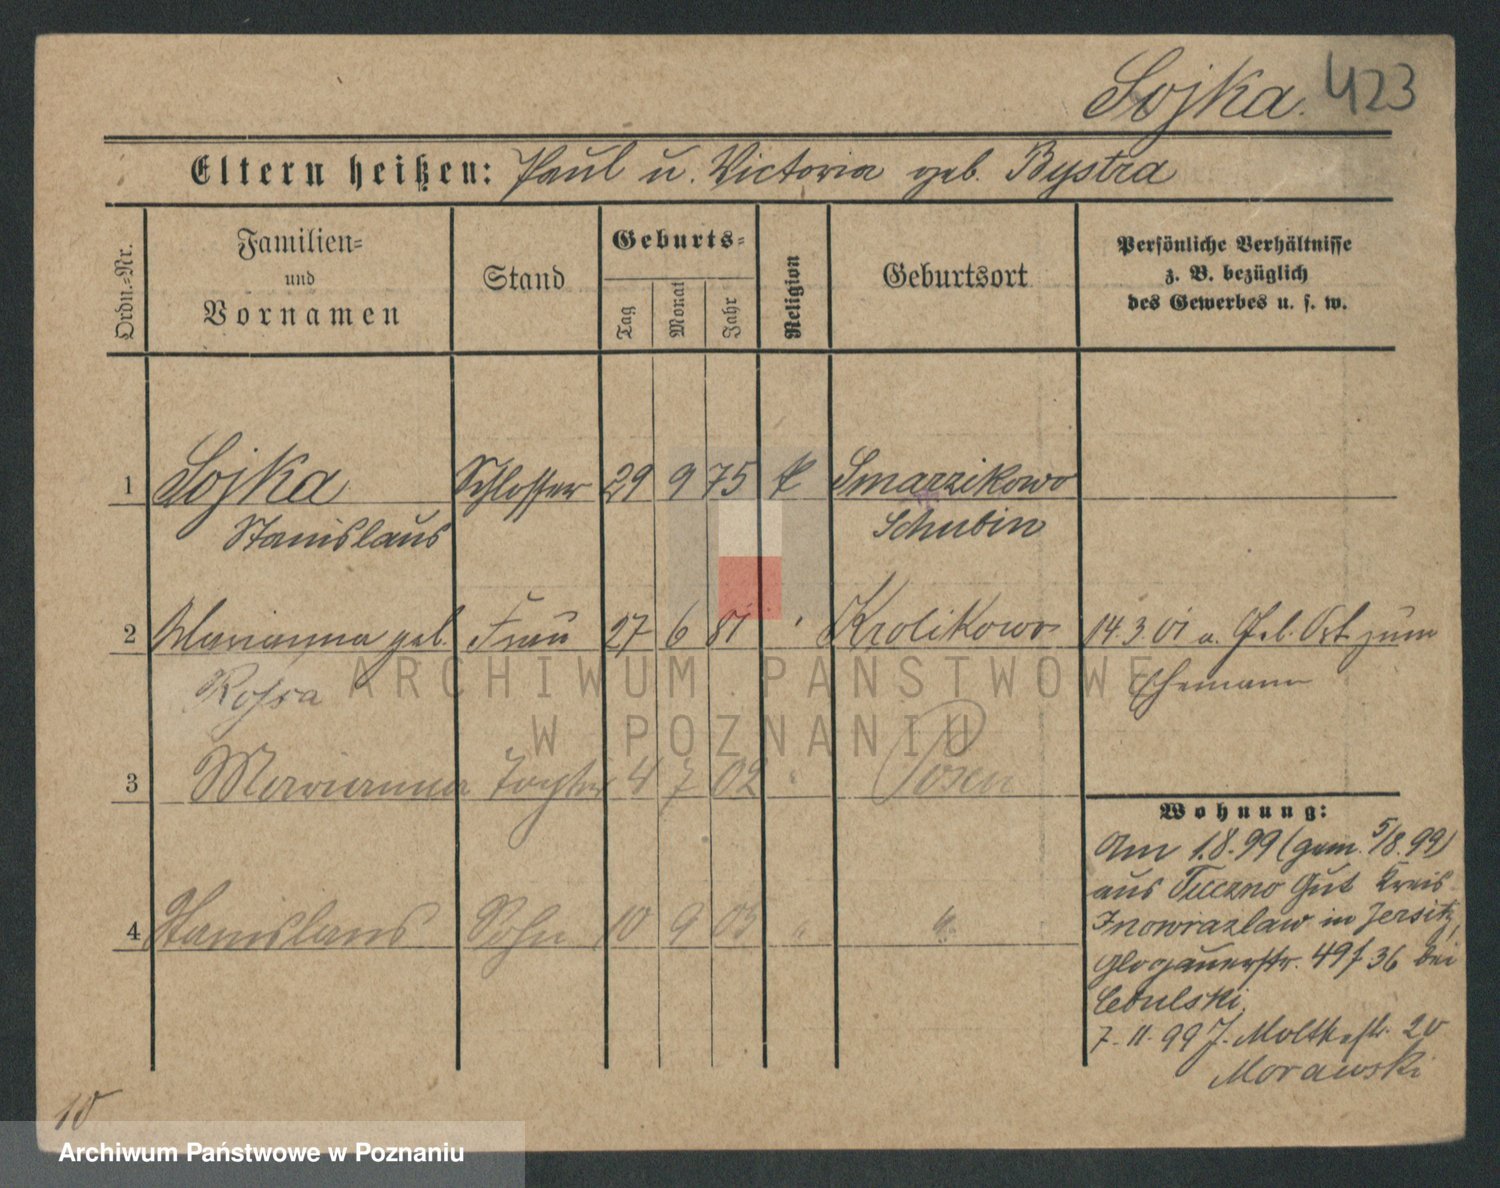 Sojka. 423
Eltern heißen: Paul u. Victoria geb. Bystra
Ordn.-Nr.
Familien-
und
Vornamen
Stand
Geburts-
Tag
Monat
Jahr
Religion
Geburtsort
Persönliche Verhältnisse
z. B. bezüglich
des Gewerbes u. s. w.
1 Sojka Schlosser 29 9 75 k Smarzikowo
Stanislaus Schubin
2 Marianna geb. Frau 27 6 81 " Krolikowo 14.3.01 a. Geb. Ort zum
Rossa Ehemann
3 Marianna Tochter 4 7 02 " Posen
4 Stanislaus Sohn 10 9 03 " "
Wohnung:
Am 1.8.99 (gem. 5/8.99)
aus Tuczno Gut Kreis
Inowrazlaw in Jersitz,
Glogauerstr. 49/36 bei
Cebulski.
7.11.99 J. Moltkestr. 20
Morawski
10
ARCHIWUM PAŃSTWOWE
W POZNANIU
Archiwum Państwowe w Poznaniu